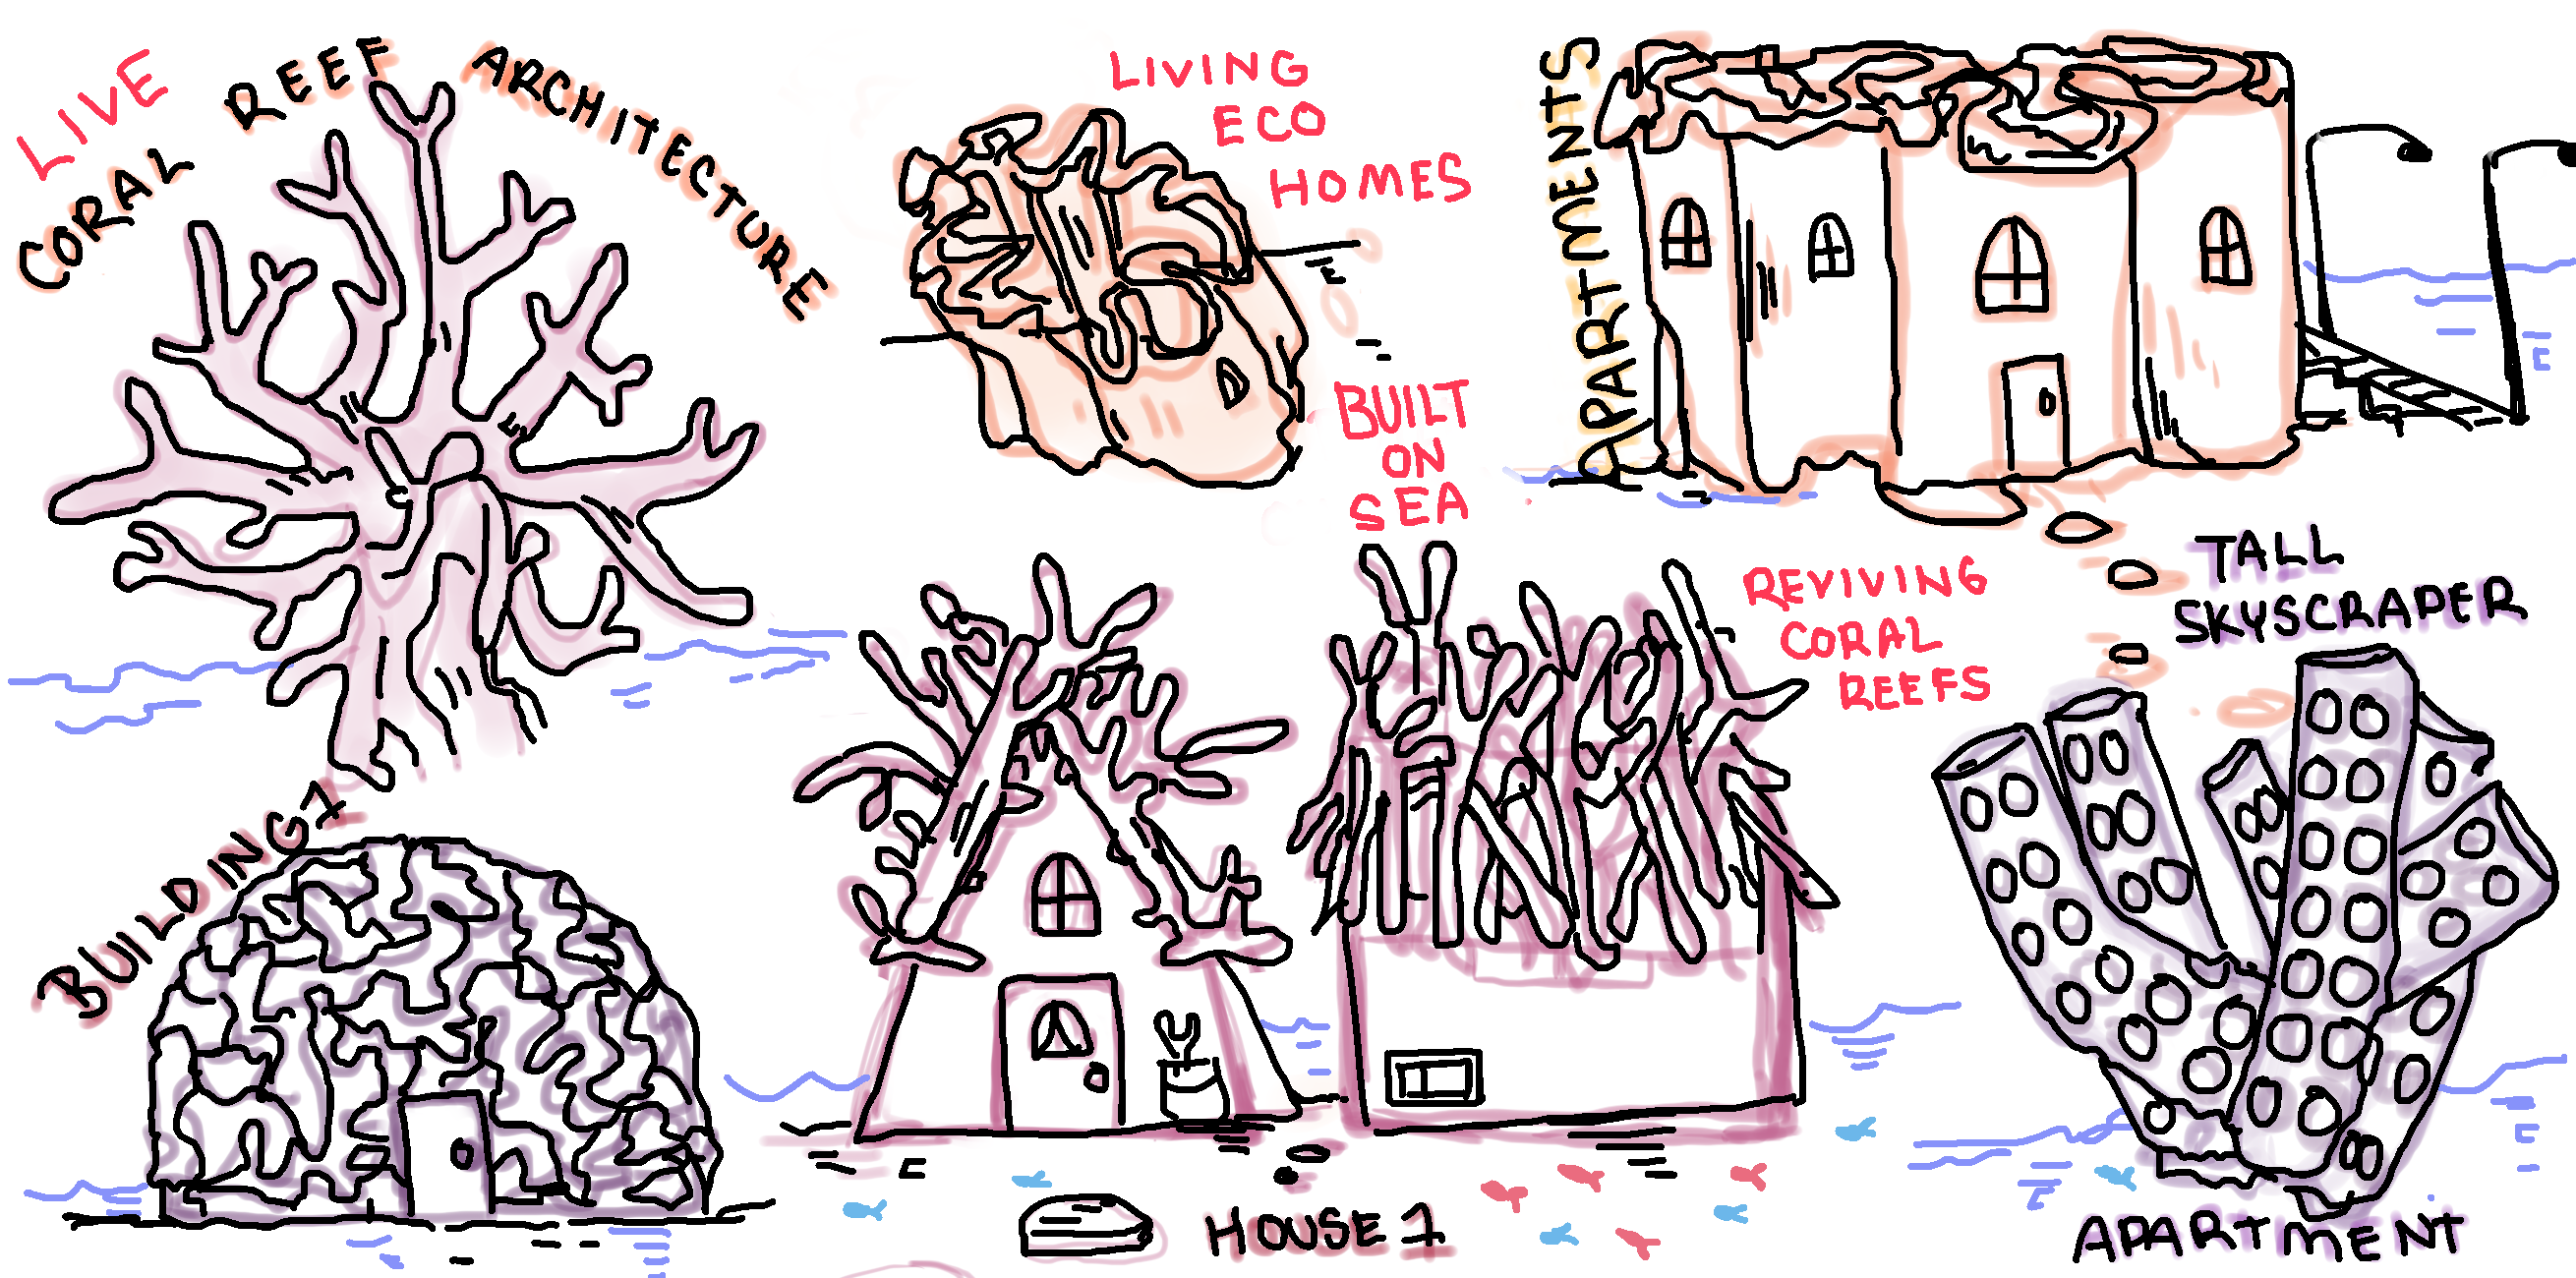 LIVE
CORAL REEF ARCHITECTURE
LIVING
ECO
HOMES
BUILT
ON
SEA
APARTMENTS
REVIVING
CORAL
REEFS
TALL
SKYSCRAPER
BUILDING 1
HOUSE 1
APARTMENT